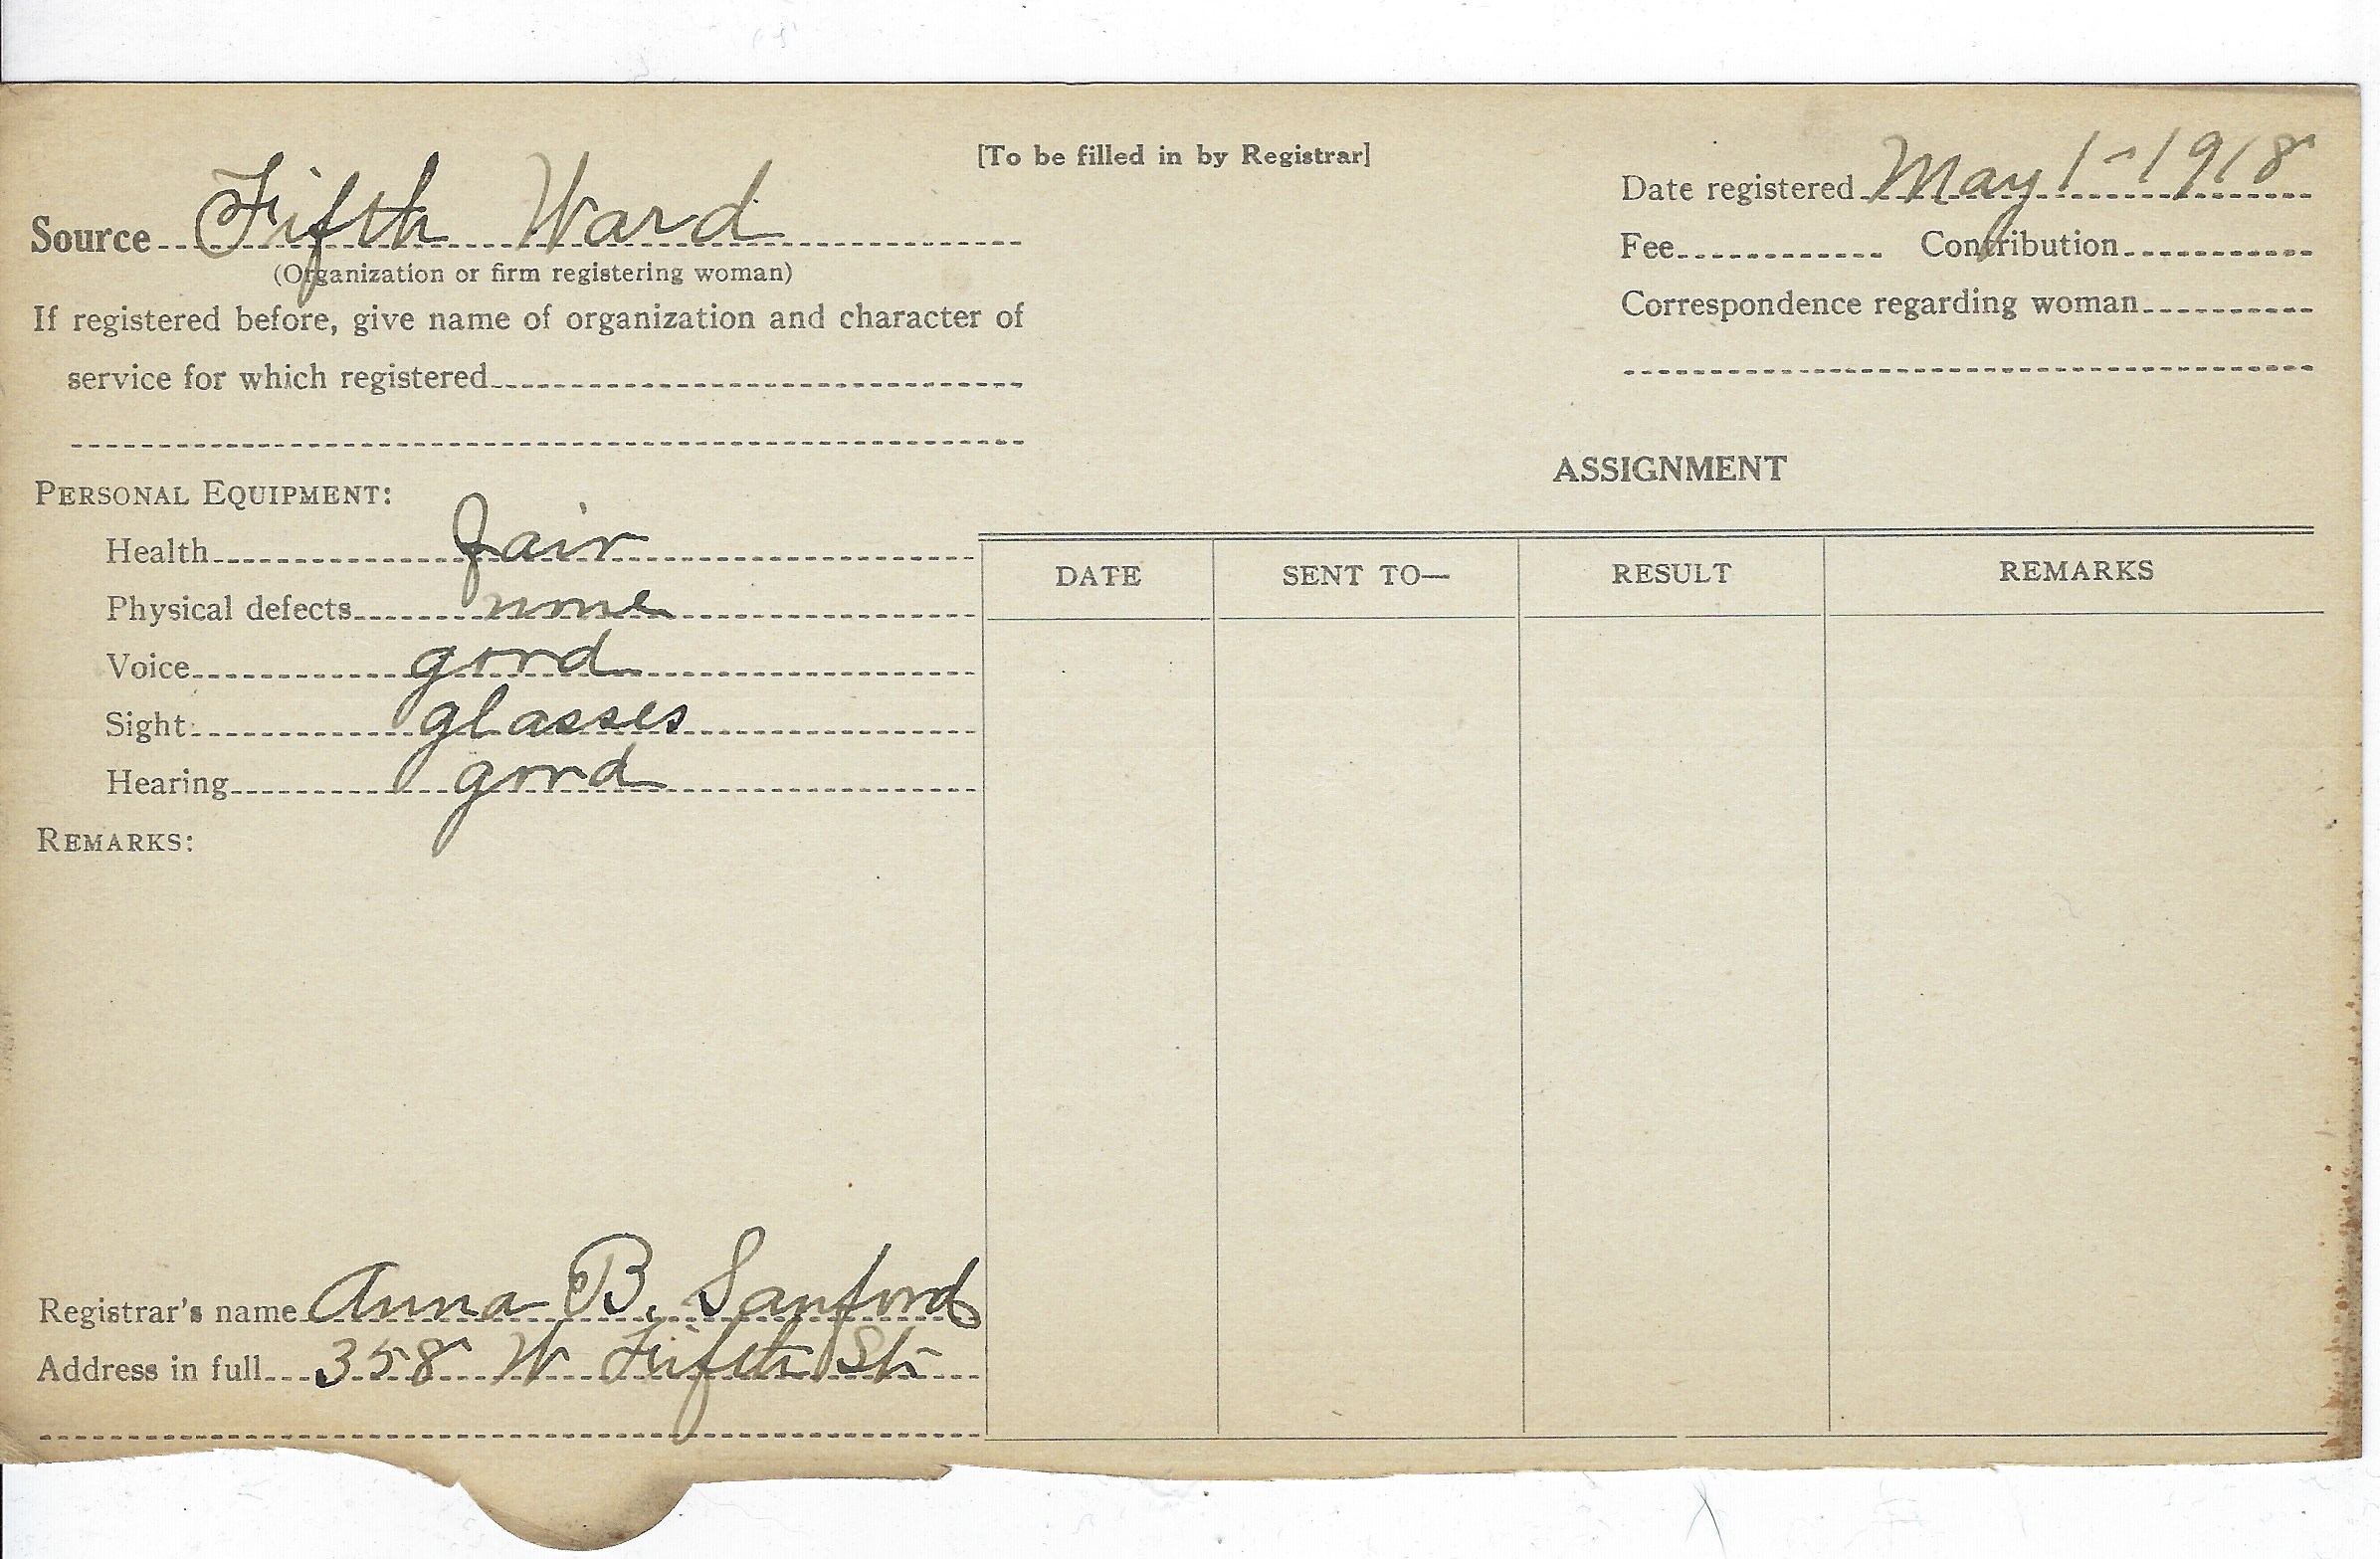 [To be filled in by Registrar]
Source Fifth Ward
(Organization or firm registering woman)
If registered before, give name of organization and character of
service for which registered
Date registered May 1-1918
Fee Contribution
Correspondence regarding woman
PERSONAL EQUIPMENT:
Health fair
Physical defects none
Voice good
Sight glasses
Hearing good
REMARKS:
Registrar's name Anna B. Sanford
Address in full 358 W Fifth St.
ASSIGNMENT
DATE SENT TO— RESULT REMARKS